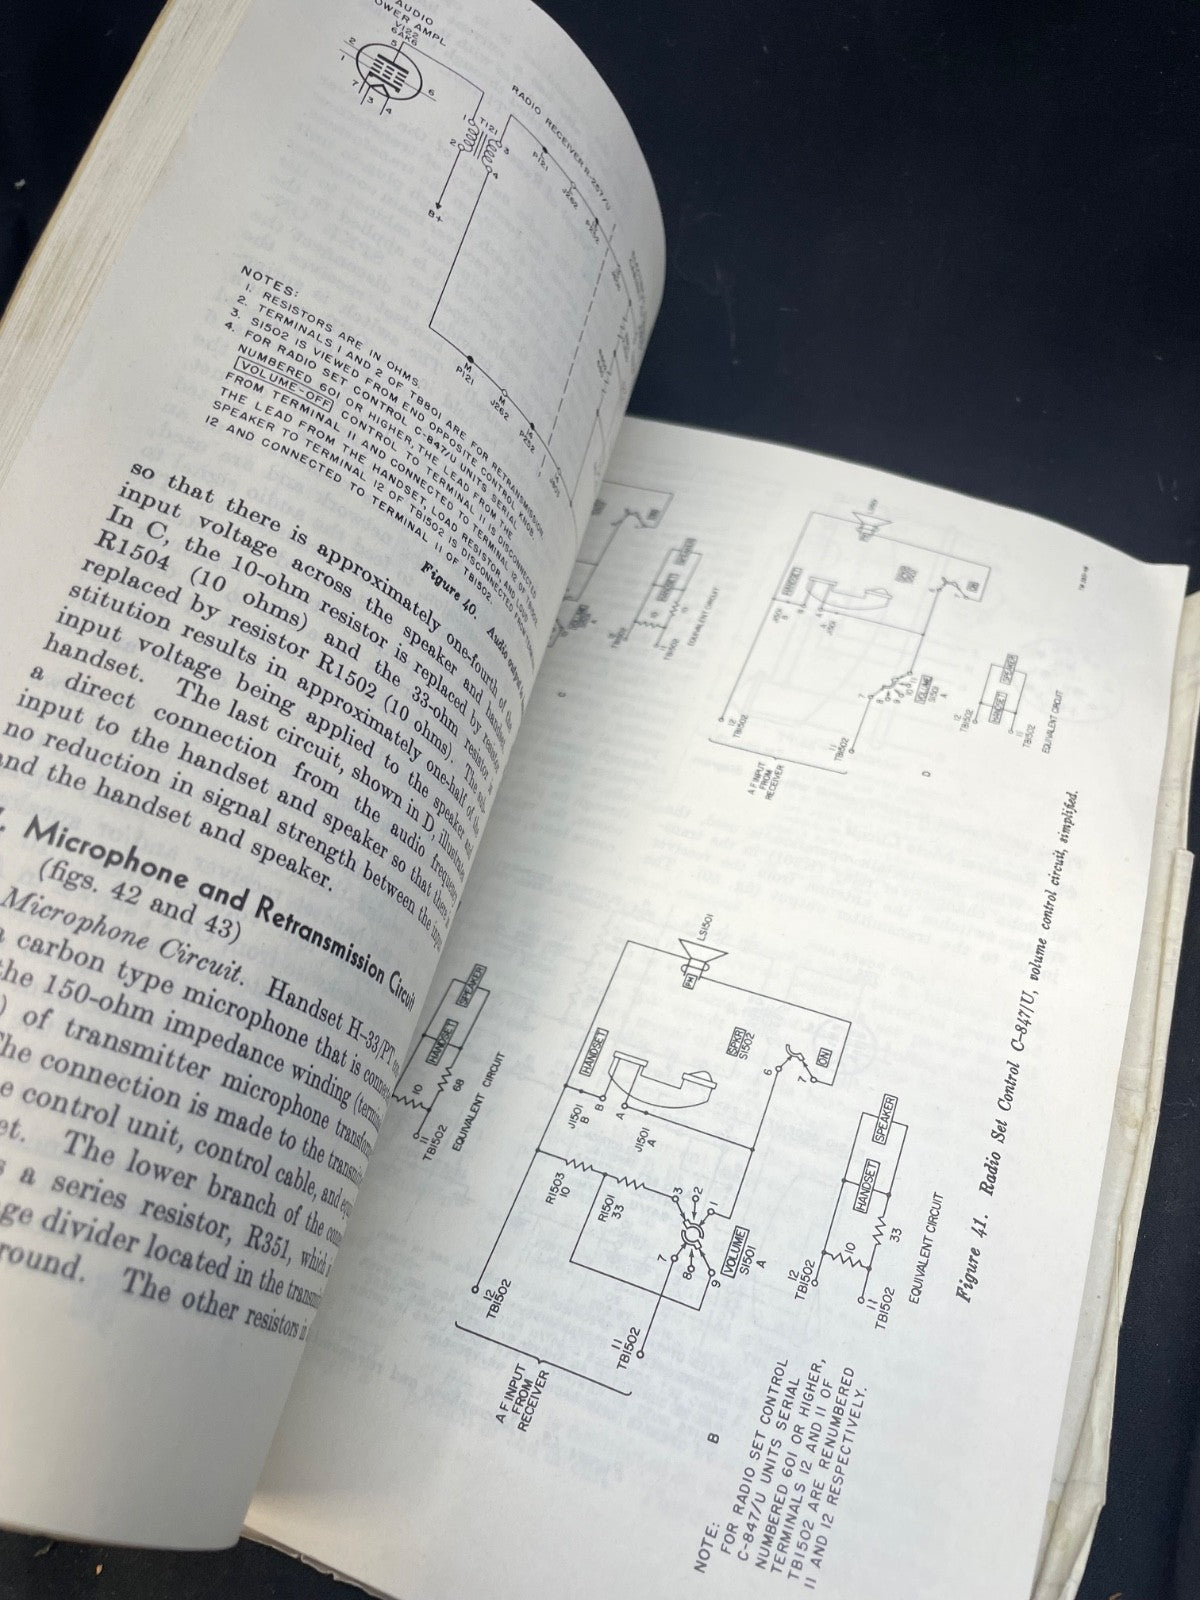 AUDIO
POWER AMPL
V122
6AK6
2
5
1
6
7
3
4
1
T121
2
3
4
B+
RADIO RECEIVER R-257/U
P121
J262
P252
M
P121
M
J262
M
P252
NOTES:
1. RESISTORS ARE IN OHMS.
2. TERMINALS 1 AND 2 OF TB801 ARE FOR RETRANSMISSION.
3. S1502 IS VIEWED FROM END OPPOSITE CONTROL KNOB.
4. FOR RADIO SET CONTROL C-847/U UNITS SERIAL
NUMBERED 601 OR HIGHER, THE LEAD FROM THE
VOLUME-OFF CONTROL TO TERMINAL 11 IS DISCONNECTED
FROM TERMINAL 11 AND CONNECTED TO TERMINAL 12 OF TB1502.
THE LEAD FROM THE HANDSET, LOAD RESISTOR, AND LOUD
SPEAKER TO TERMINAL 12 OF TB1502 IS DISCONNECTED FROM TERMINAL
12 AND CONNECTED TO TERMINAL 11 OF TB1502.
Figure 40. Audio output
so that there is approximately one-fourth of the
input voltage across the speaker and handset.
In C, the 10-ohm resistor is replaced by resistor
R1504 (10 ohms) and the 33-ohm resistor is
replaced by resistor R1502 (10 ohms). The sub-
stitution results in approximately one-half of the
input voltage being applied to the speaker and
handset. The last circuit, shown in D, illustrates
a direct connection from the audio frequency
input to the handset and speaker so that there is
no reduction in signal strength between the input
and the handset and speaker.
. Microphone and Retransmission Circuit
(figs. 42 and 43)
Microphone Circuit. Handset H-33/PT
a carbon type microphone that is connected
the 150-ohm impedance winding
) of transmitter microphone
The connection is made to the
e control unit, control cable, and
et. The lower branch of the
s a series resistor, R351, which
ge divider located in the
round. The other resistors in
C
EQUIVALENT CIRCUIT
A F INPUT
FROM
RECEIVER
12
TB1502
11
TB1502
HANDSET
VOLUME
S1501
A
ON
D
12
TB1502
11
TB1502
HANDSET
SPEAKER
EQUIVALENT CIRCUIT
10
68
11
TB1502
HANDSET
SPEAKER
EQUIVALENT CIRCUIT
A F INPUT
FROM
RECEIVER
12
TB1502
11
TB1502
R1503
10
R1501
33
J1501
B
B
A
J1501
A
HANDSET
PM
LS1501
SPKR
S1502
6
7
ON
3
2
1
7
8
9
VOLUME
S1501
A
B
12
TB1502
11
TB1502
10
33
HANDSET
SPEAKER
EQUIVALENT CIRCUIT
NOTE:
FOR RADIO SET CONTROL
C-847/U UNITS SERIAL
NUMBERED 601 OR HIGHER,
TERMINALS 12 AND 11 OF
TB1502 ARE RENUMBERED
11 AND 12 RESPECTIVELY.
Figure 41. Radio Set Control C-847/U, volume control circuit, simplified.